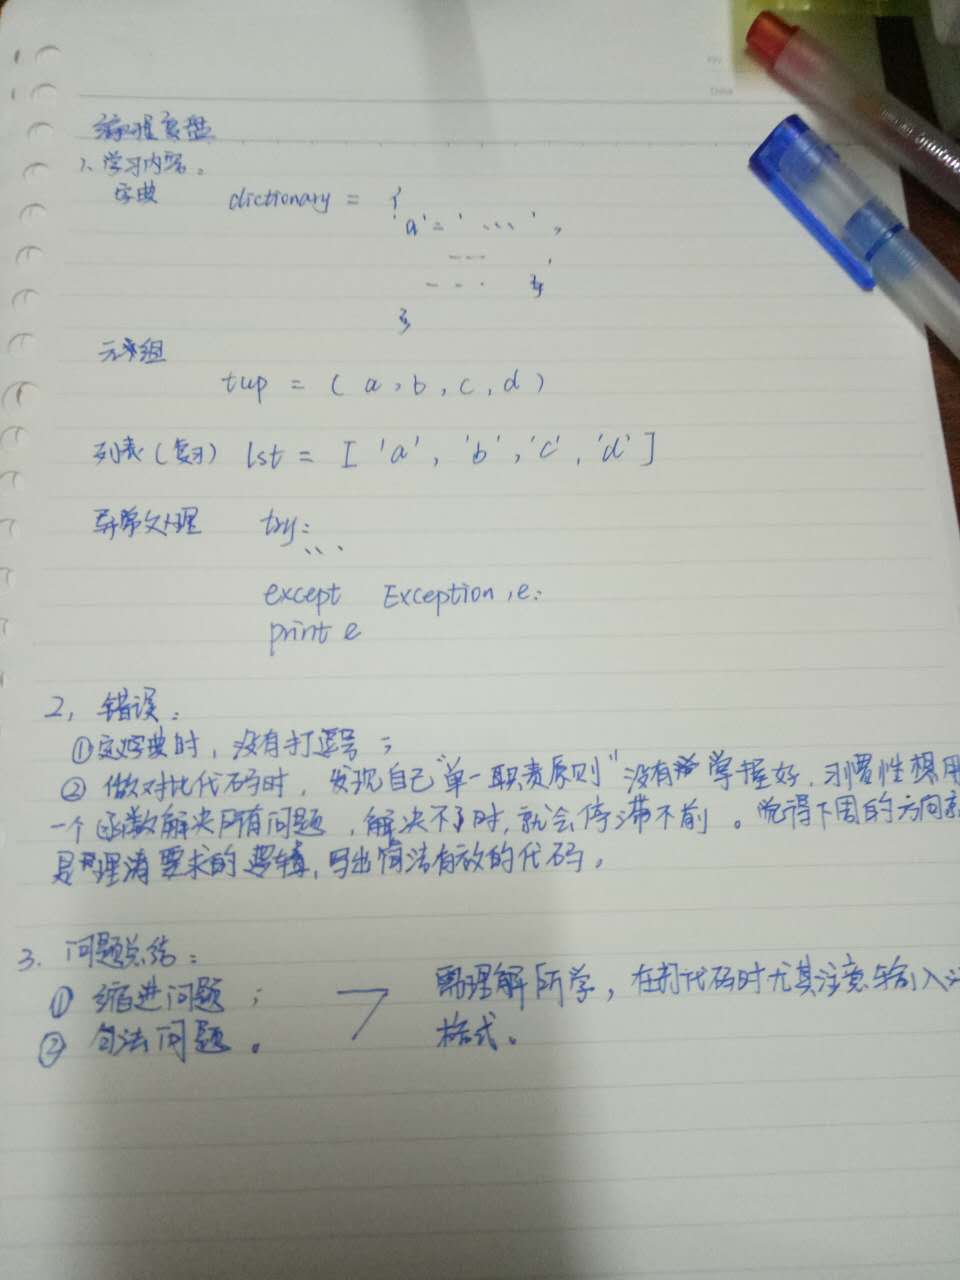 编程复盘
1、学习内容。
字典 dictionary = {
'a' = ' ... ',
---
--- '
}
元组
tup = ( a , b , c , d )
列表(复习) lst = [ 'a' , 'b' , 'c' , 'd' ]
异常处理 try:
...
except Exception , e:
print e
2, 错误:
①定字典时,没有打逗号;
② 做对比代码时,发现自己"单一职责原则"没有掌握好,习惯性想用
一个函数解决所有问题,解决不了时,就会停滞不前。觉得下周的方向就
是理清要求的逻辑,写出简洁有效的代码。
3. 问题总结:
① 缩进问题; 需理解所学,在打代码时尤其注意输入
② 句法问题。 格式。